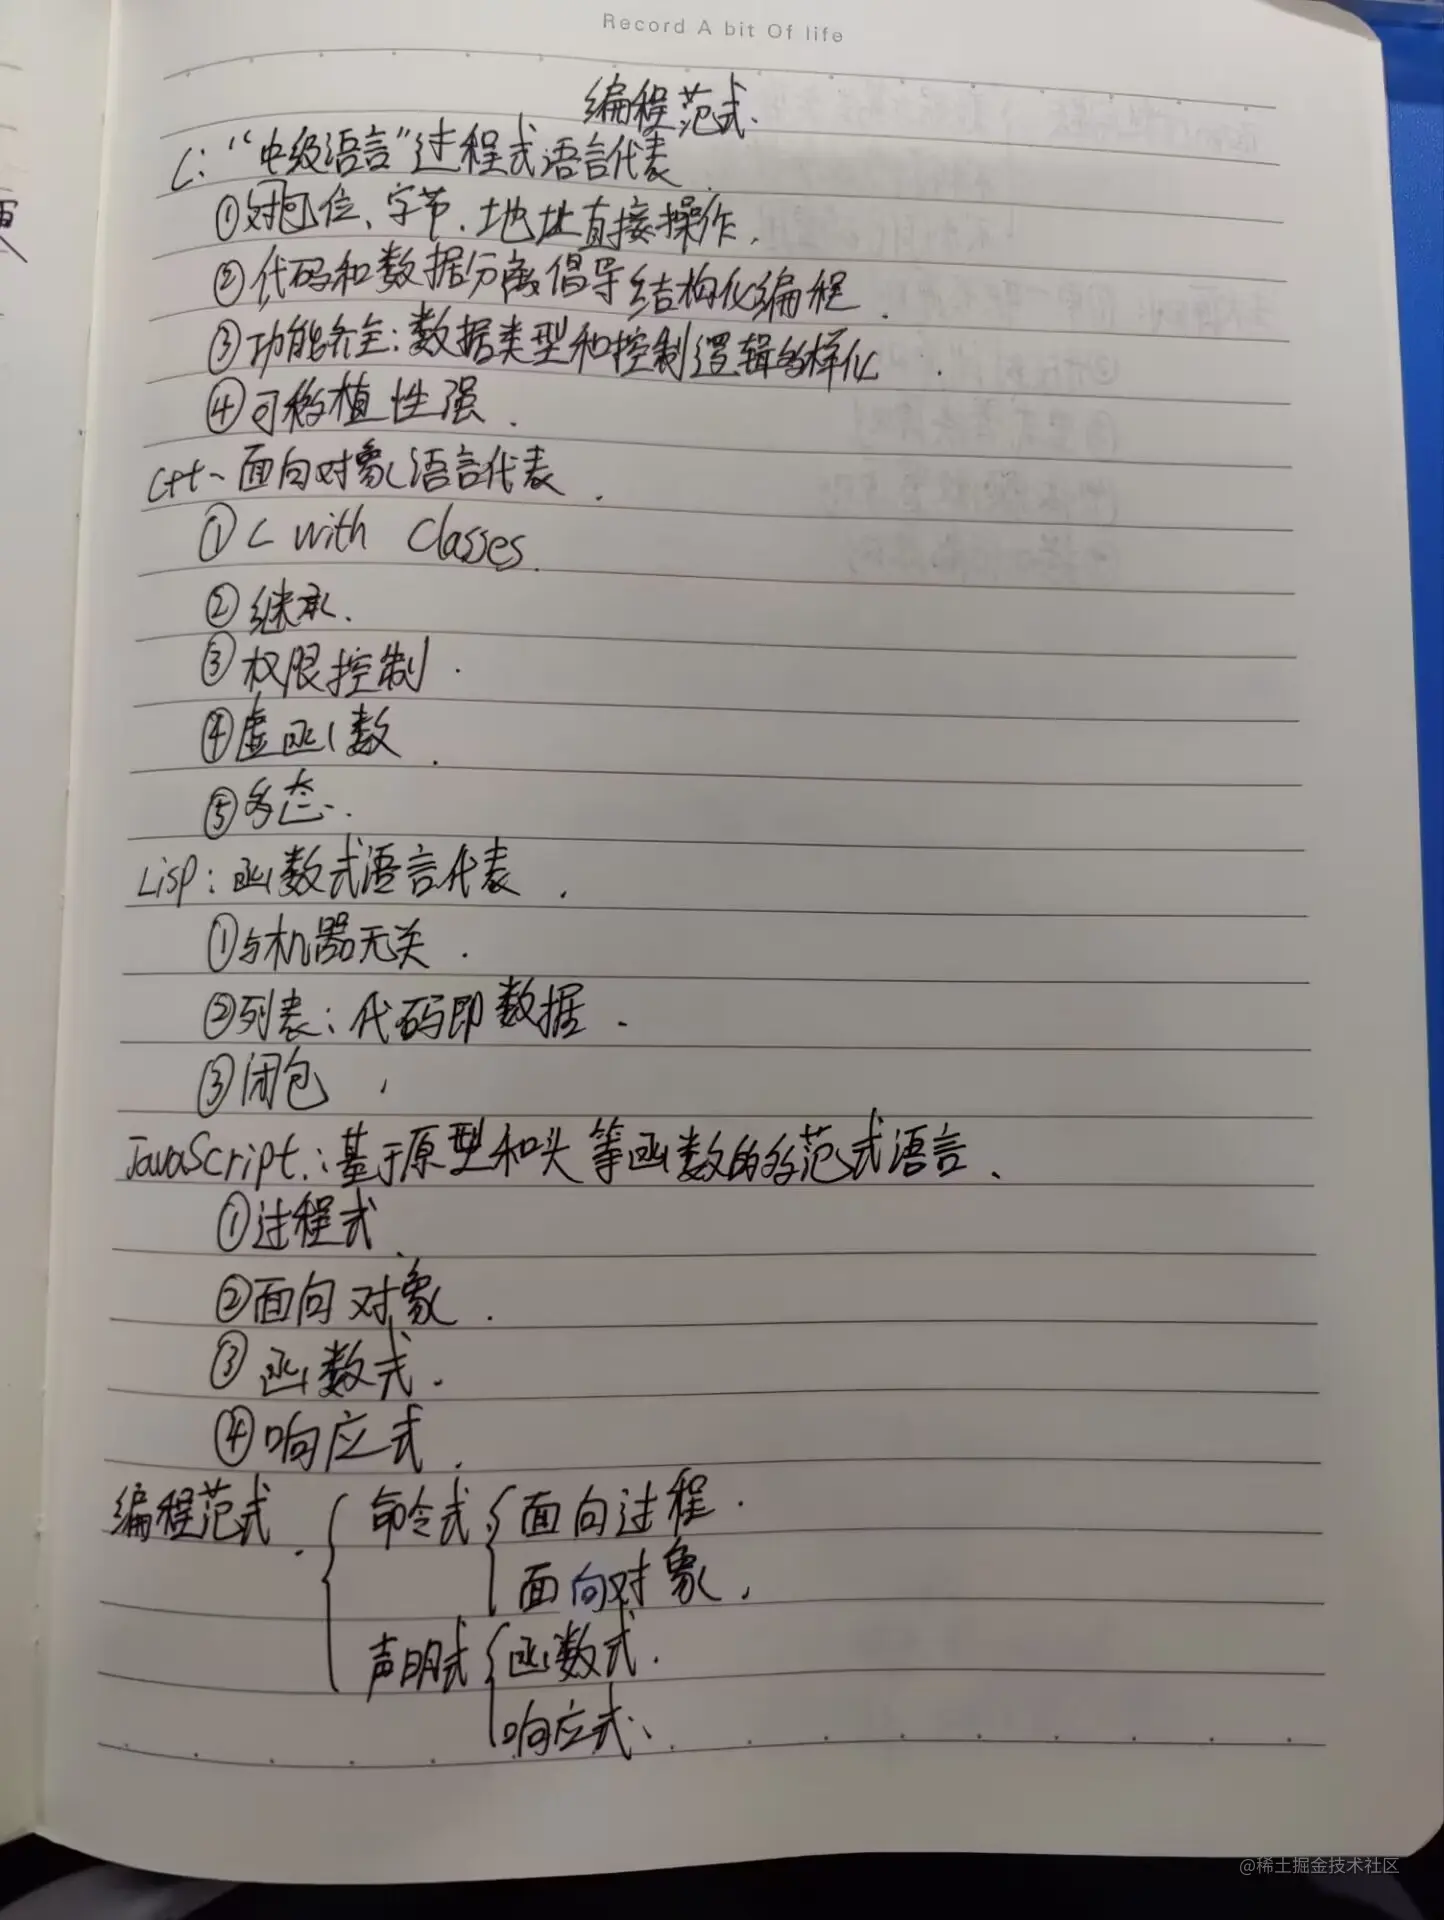 Record A bit Of life
编程范式.
C: “中级语言”过程式语言代表.
①对位、字节、地址直接操作.
②代码和数据分离倡导结构化编程.
③功能齐全: 数据类型和控制逻辑多样化.
④可移植性强.
C++、面向对象语言代表.
①C with Classes.
②继承.
③权限控制.
④虚函数.
⑤多态.
Lisp: 函数式语言代表.
①与机器无关.
②列表: 代码即数据.
③闭包.
JavaScript.: 基于原型和头等函数的多范式语言.
①过程式.
②面向对象.
③函数式.
④响应式.
编程范式. { 命令式 { 面向过程.
面向对象.
声明式 { 函数式.
响应式.
@稀土掘金技术社区